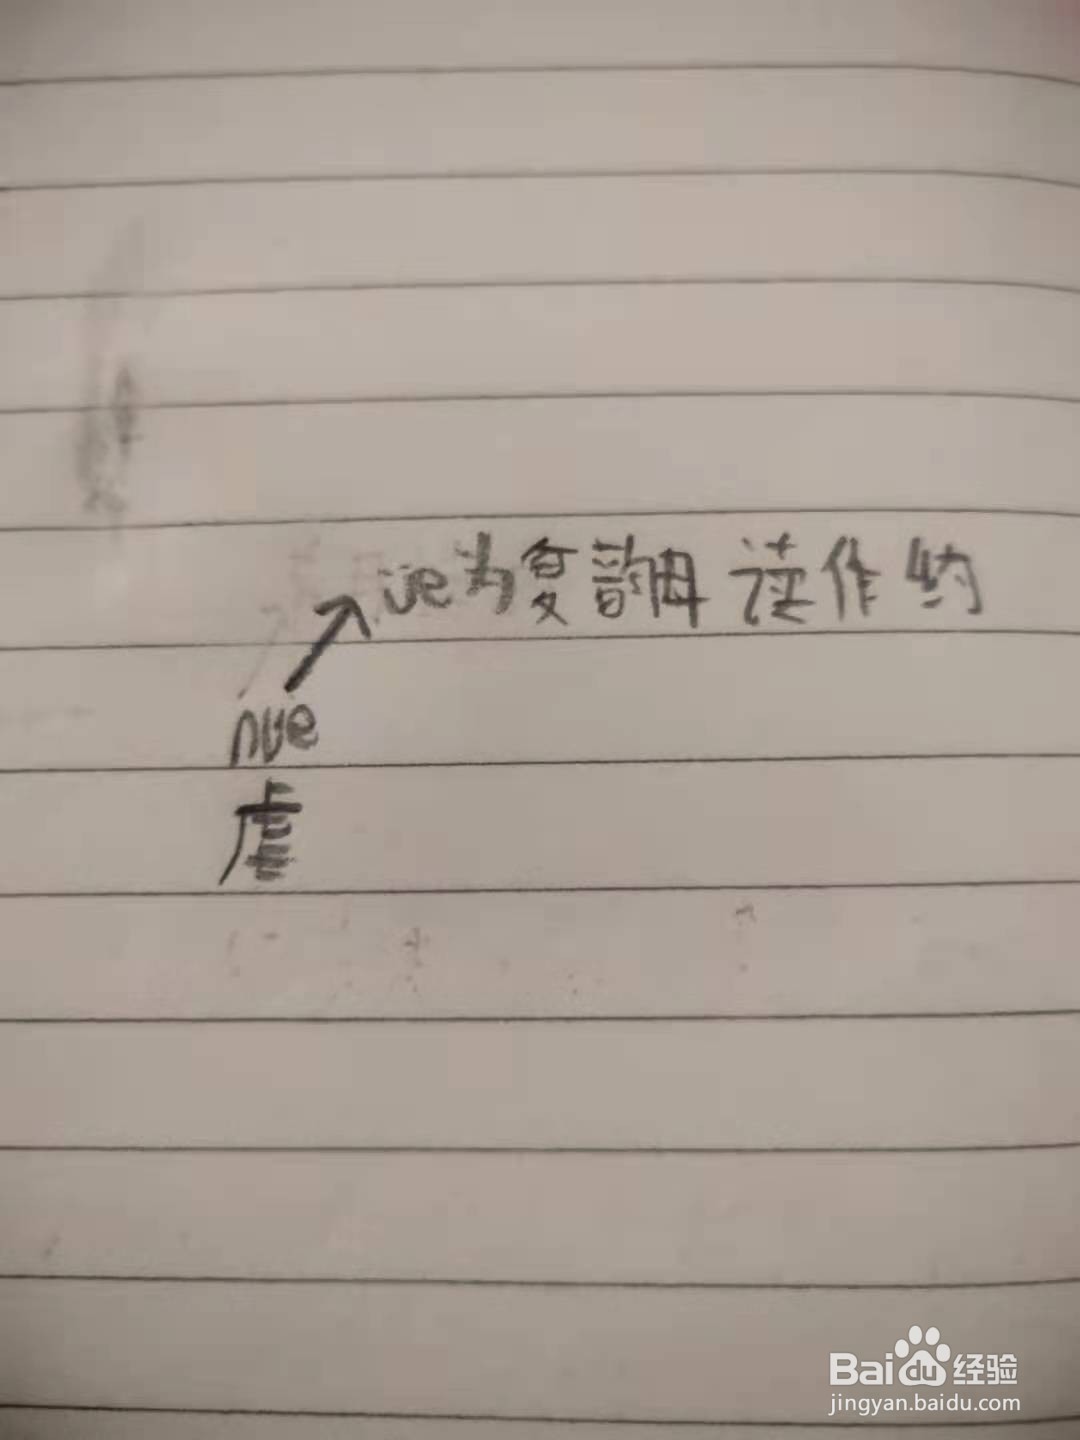 üe为复韵母 读作约
nue
虐
Baidu经验
jingyan.baidu.com